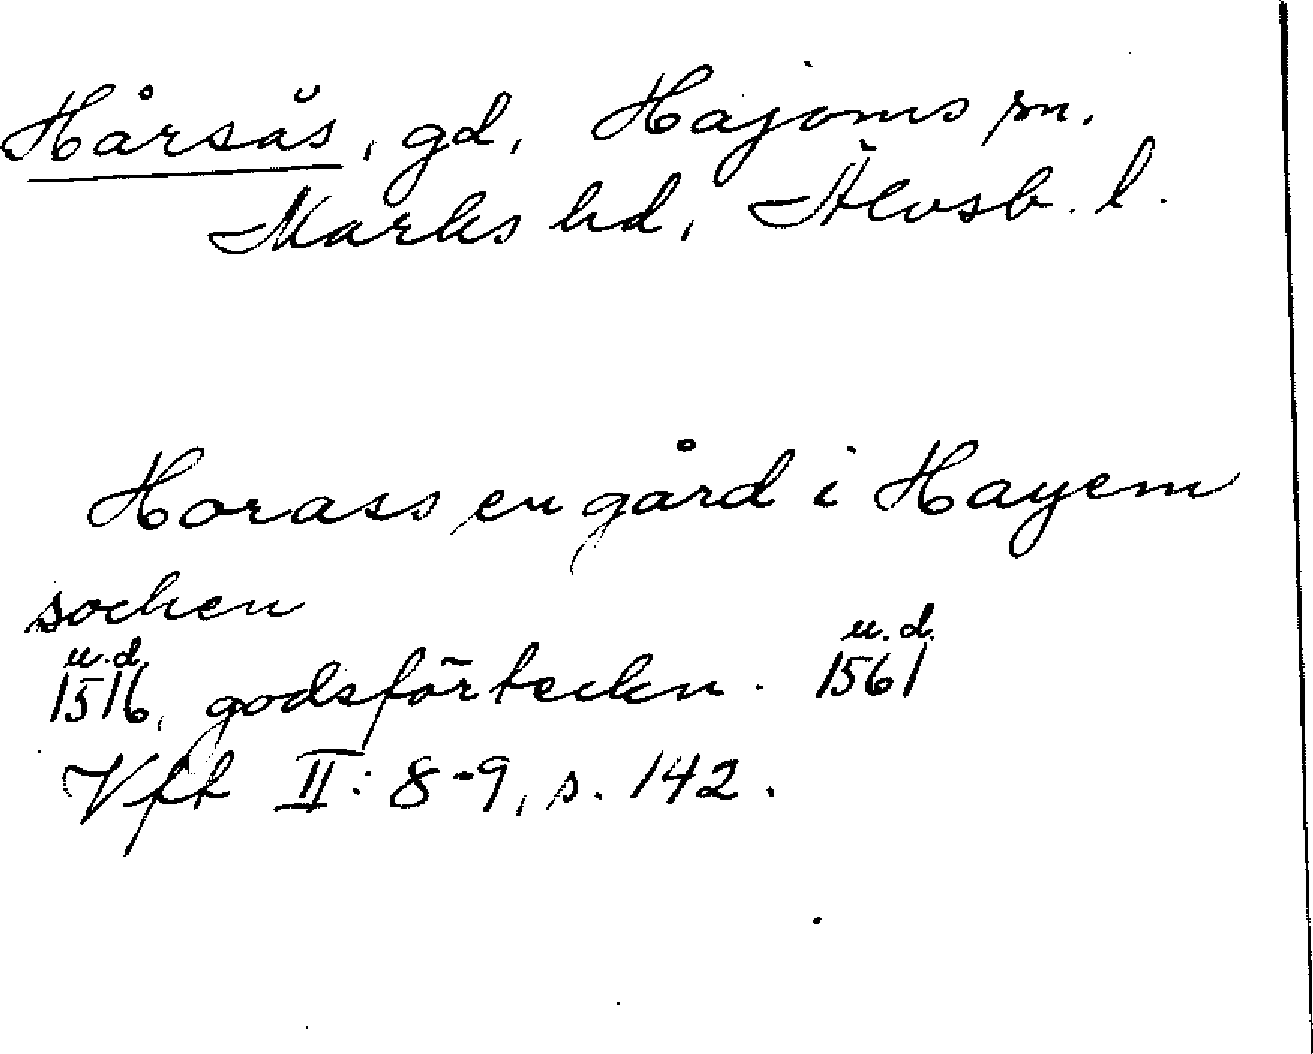 Hårsås, gd, Hajoms sn.
Marks hd, Älvsb. l.
Horass en gård i Hayem
socken
u.d. u.d.
1516, godsförteckn. 1561
Vfft II: 8-9, s. 142.